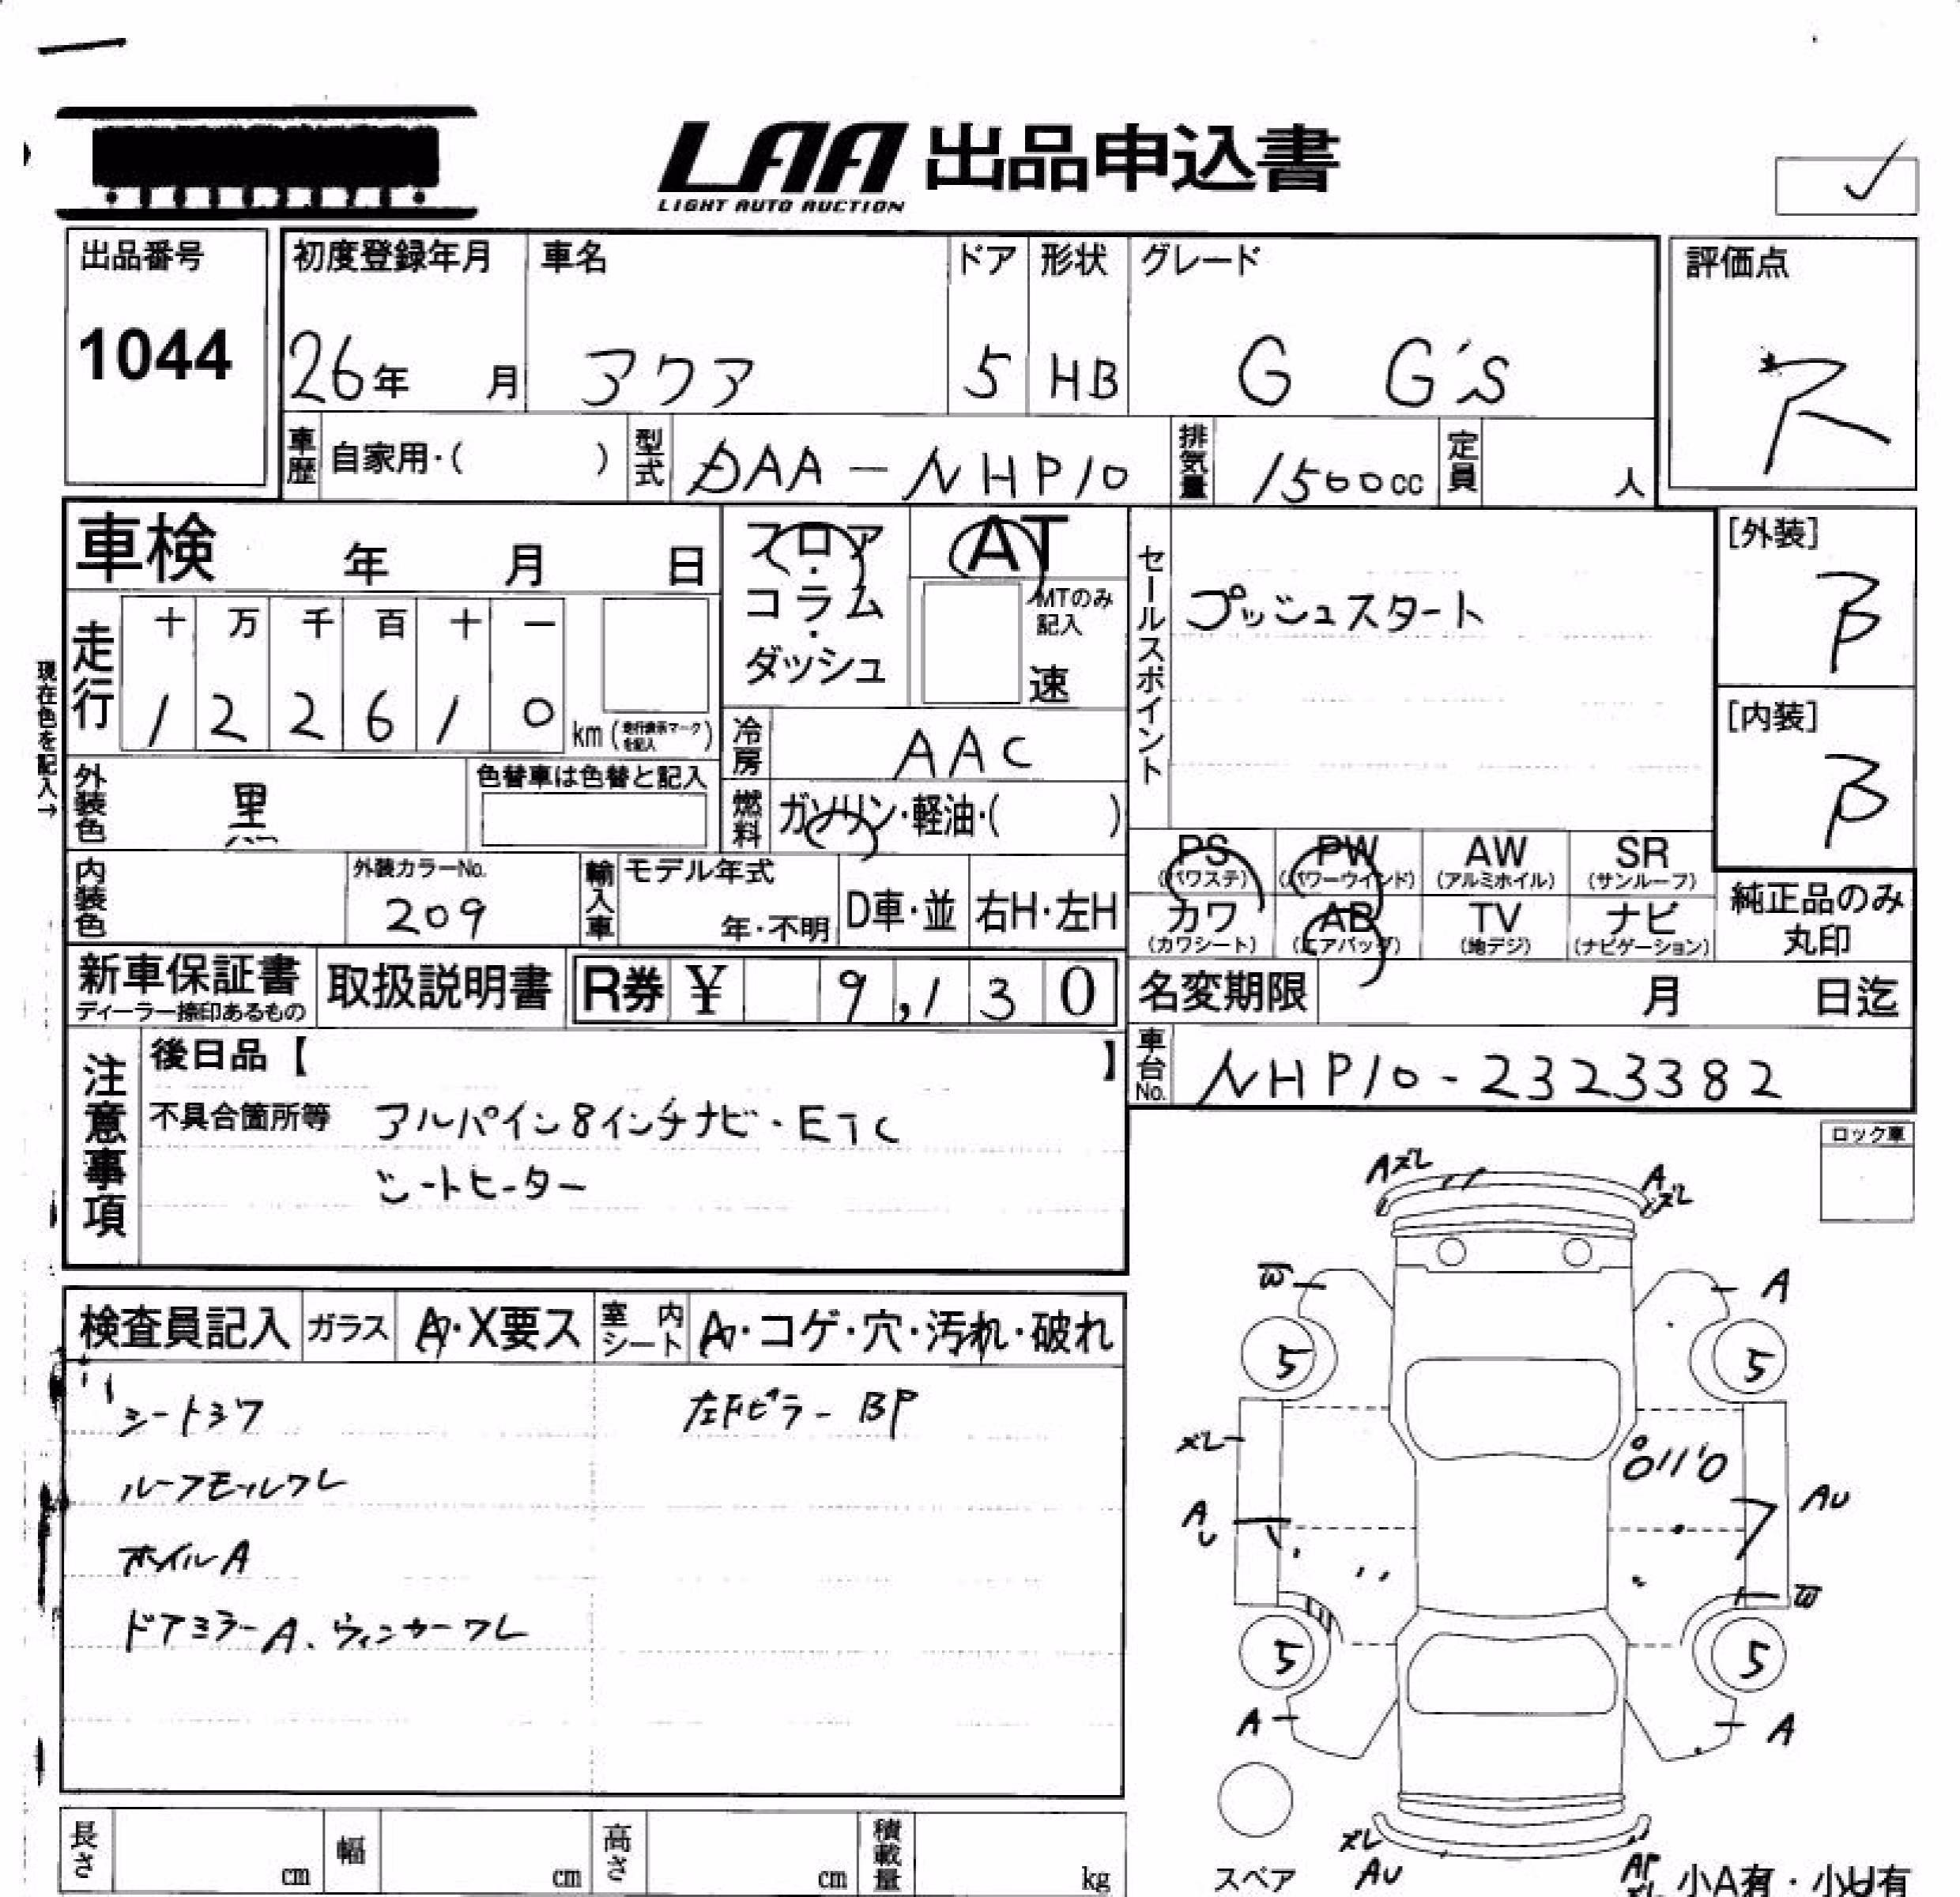 LAA 出品申込書
LIGHT AUTO AUCTION
出品番号
1044
初度登録年月
26年 月
車名
アクア
ドア
5
形状
HB
グレード
G G's
評価点
R
車歴 自家用・( )
型式 DAA-NHP10
排気量 1500cc
定員 人
車検 年 月 日
フロア・コラム・ダッシュ
AT
MTのみ記入
速
セールスポイント
プッシュスタート
[外装]
B
[内装]
B
現在色を記入→
走行
十 万 千 百 十 一
1 2 2 6 1 0
km (走行表示マークを記入)
冷房 AAC
外装色 黒
色替車は色替と記入
燃料 ガソリン・軽油・( )
内装色
外装カラーNo.
209
輸入車
モデル年式
年・不明
D車・並
右H・左H
PS (パワステ)
PW (パワーウインド)
AW (アルミホイル)
SR (サンルーフ)
カワ (カワシート)
AB (エアバッグ)
TV (地デジ)
ナビ (ナビゲーション)
純正品のみ
丸印
新車保証書
ディーラー捺印あるもの
取扱説明書
R券 ¥ 9,130
名変期限 月 日迄
車台No. NHP10-2323382
注意事項
後日品【 】
不具合箇所等 アルパイン8インチナビ・ETC
シートヒーター
ロック車
検査員記入
ガラス A・X要ス
室内シート A・コゲ・穴・汚れ・破れ
シートヨゴ
左Fピラー BP
ルーフモールワレ
ホイルA
ドアミラーA、ウィンカーワレ
Aズレ
A ズレ
W
A
5
5
ズレ
AU
AU
W
5
5
A
A
ズレ
AU
スペア
小A有・小U有
長さ cm
幅 cm
高さ cm
積載量 kg